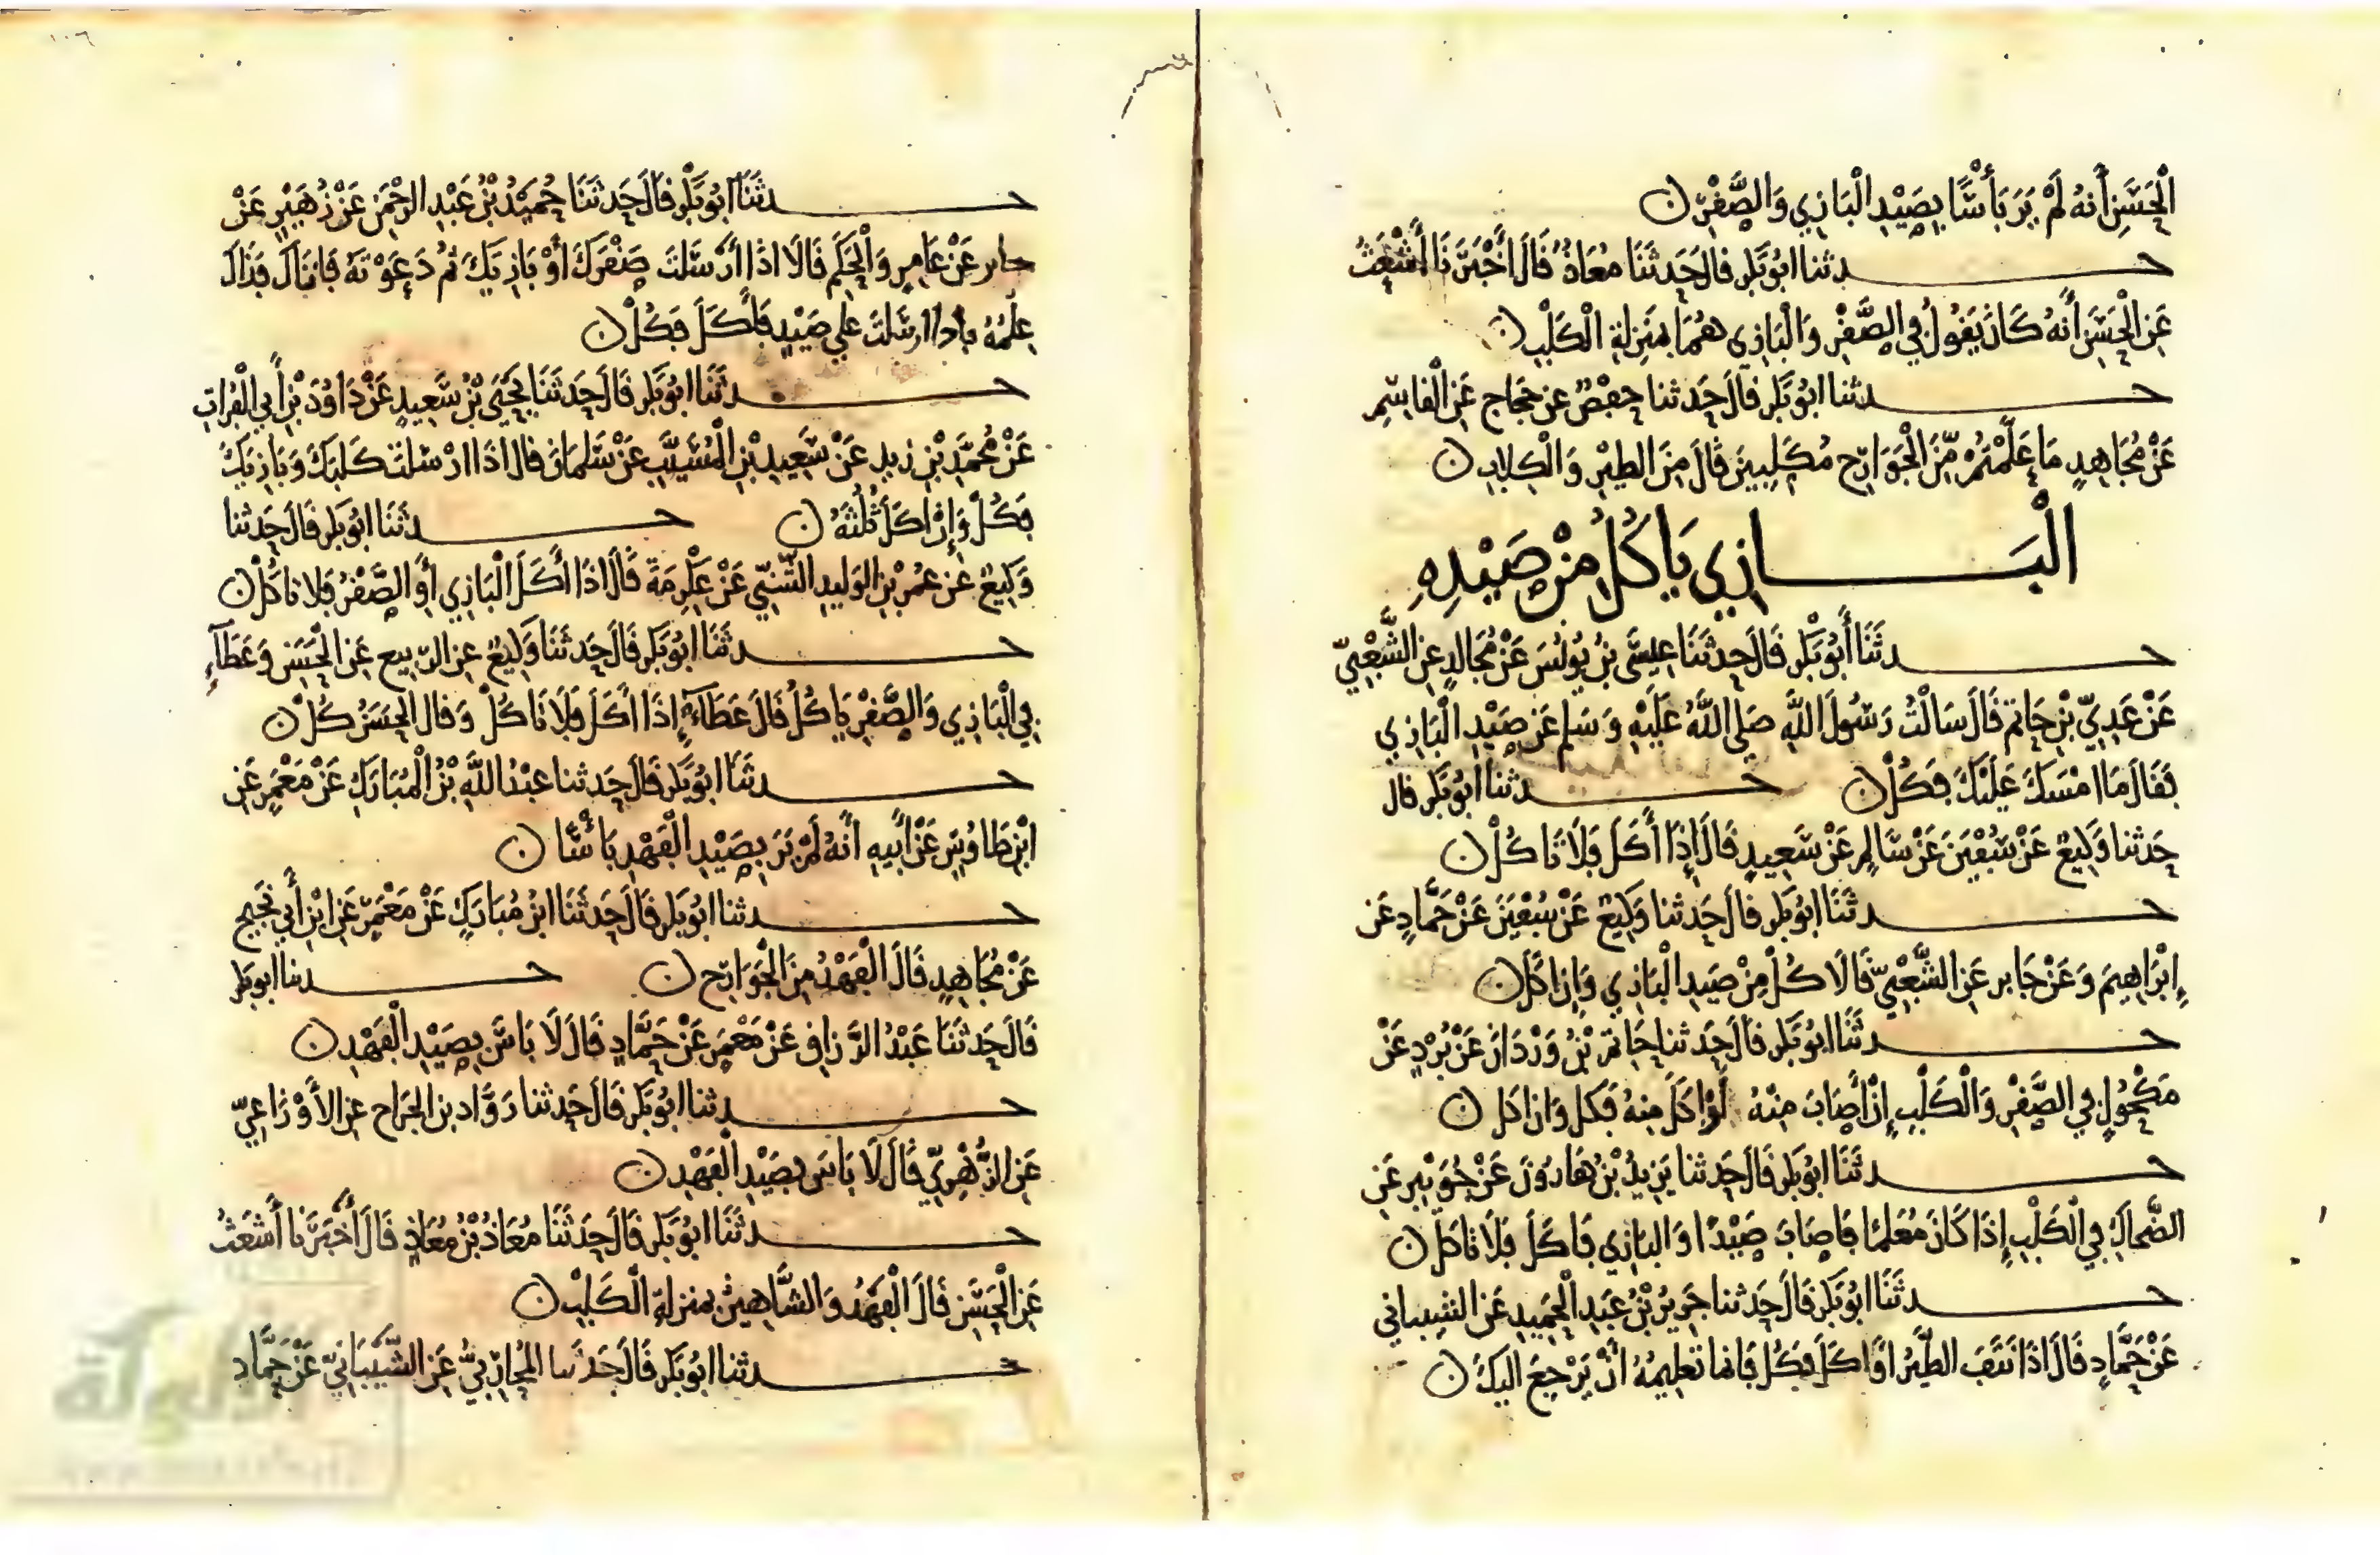 الْحَسَنِ أَنَّهُ لَمْ يَرَ بَأْسًا بِصَيْدِ الْبَازِي وَالصَّقْرِ ن
حـدثنا ابُو بَكْرٍ قالَ حَدثَنَا مُعَاذٌ قَالَ أَخْبَرَنَا أَشْعَثُ
عَنِ الْحَسَنِ أَنَّهُ كَانَ يَقُولُ فِي الصَّقْرِ وَالْبَازِي هُمَا بِمَنْزِلَةِ الْكَلْبِ ن
حـدثنا ابُو بَكْرٍ قالَ حَدثنا حفصٌ عن حجاج عَنِ الْقاسِمِ
عَنْ مُجَاهِدٍ مَا عَلَّمْتُمْ مِّنَ الْجَوَارِحِ مُكَلِّبِينَ قَالَ مِنَ الطيْرِ وَالْكِلابِ ن
الْبَـازِي يَاكُلُ مِنْ صَيْدِهِ
حـدثَنَا أَبُو بَكْرٍ قَالَ حَدثَنَا عِيسَى بْنُ يُونُسَ عَنْ مُجَالدٍ عَنِ الشَّعْبِيِّ
عَنْ عَدِيِّ بْنِ حَاتِمٍ قَالَ سَالْتُ رَسُولَ اللَّهِ صَلى اللَّهُ عَلَيْهِ وَسَلم عَن صَيْدِ الْبَازِي
فَقَالَ مَا امْسَكَ عَلَيْكَ فَكُلْ ن حـدثنا ابُو بَكْرٍ قال
حَدثنا وَكِيعٌ عَنْ سُفْيَنَ عَنْ سَالِمٍ عَنْ سَعِيدٍ قَالَ إِذَا أَكَلَ فَلَا تَاكُلْ ن
حـدثَنَا ابُو بَكْرٍ قالَ حَدثنا وَكِيعٌ عَنْ سُفْيَنَ عَنْ حَمَّادٍ عَن
إِبْرَاهِيمَ وَعَنْ جَابر عَنِ الشَّعْبِيِّ قَالَا كُلْ مِنْ صَيدِ الْبَازِي وَإِنْ اكَلَ ن
حـدثَنَا ابُو بَكْرٍ قالَ حَدثنا حَاتِمُ بْنُ وَرْدَانَ عَنْ بُرْدٍ عَنْ
مَكْحُولٍ فِي الصَّقْرِ وَالْكَلْبِ إِنْ أَصَابَ مِنْهُ أَوْ اكَلَ مِنهُ فَكل وَان اكل ن
حـدثَنَا ابُو بَكْرٍ قَالَ حَدثنا يَزِيدُ بْنُ هَارُونَ عَنْ جُوَيْبِرٍ عَنِ
الضَّحاكِ فِي الْكَلْبِ إِذَا كَانَ مُعَلمًا فَاصَابَ صَيْدًا وَالبَازِي فَاكَلَ فَلَا تَاكُلْ ن
حـدثَنَا ابُو بَكْرٍ قَالَ حَدثنا جَرِيرُ بْنُ عَبْدِ الْحَمِيدِ عَنِ الشيباني
عَنْ حَمَّادٍ قَالَ اذَا نَتَفَ الطَّيْرُ اوْ اكَلَ فَكُلْ فَانما تَعلِيمُهُ أَنْ يَرْجِعَ اليكَ ن
حـدثَنَا ابُو بَكْرٍ قالَ حَدثَنَا حُمَيْدُ بْنُ عَبْدِ الرحْمنِ عَنْ زُهَيْرٍ عَنْ
جابر عَنْ عَامِرٍ وَالْحَكَمِ قَالَا اذَا أَرْسَلتَ صَقْرَكَ أَوْ بَازِيَكَ ثُم دَعَوْتَهُ فَاتَاكَ فَذَاكَ
عِلْمُهُ فاذا ارسَلتَ عَلى صَيْدٍ فَأَكَلَ فَكُلْ ن
حـدثَنَا ابُو بَكْرٍ قَالَ حَدثَنَا يَحْيَى بْنُ سَعِيدٍ عَنْ دَاوُدَ بْنِ أَبِي الْفُرَاتِ
عَنْ مُحَمَّدِ بْنِ زيد عَنْ سَعِيدِ بْنِ الْمُسَيَّبِ عَنْ سَلمَانَ قال اذَا ارْسَلتَ كَلبَكَ وَبَازِيَكَ
فَكُلْ وَإِنْ اكَلَ ثُلُثَهُ ن حـدثَنَا ابُو بَكْرٍ قَالَ حَدثنا
وَكِيعٌ عَنْ عُمَرَ بْنِ الوَليدِ الشَّنِّيِّ عَنْ عِكْرِمَةَ قَالَ اذَا أَكَلَ الْبَازِي أَوِ الصَّقْرُ فَلا تاكُلْ ن
حـدثَنَا ابُو بَكْرٍ قَالَ حَدثَنَا وَكِيعٌ عنِ الربيع عَنِ الْحَسَنِ وَعَطَآءٍ
فِي الْبَازِي وَالصَّقْرِ يَاكُلُ قَالَ عَطَآءٌ إِذَا أَكَلَ فَلَا تَاكُلْ وَقال الْحَسَنُ كُلْ ن
حـدثَنَا ابُو بَكْرٍ قَالَ حَدثنا عبْدُ اللَّهِ بْنُ الْمُبَارَكِ عَنْ مَعْمَرٍ عَنِ
ابْنِ طَاوُسٍ عَنْ أَبيهِ أَنَّهُ لَمْ يَرَ بِصَيْدِ الْفَهْدِ بَأْسًا ن
حـدثنا ابُو بَكْرٍ قَالَ حَدثَنَا ابنُ مُبَارَكٍ عَنْ مَعْمَرٍ عَنِ ابْنِ أَبِي نَجِيحٍ
عَنْ مُجَاهِدٍ قَالَ الْفَهْدُ مِنَ الْجَوَارِحِ ن حـدثنا ابو بكر
قَالَ حَدثَنَا عَبْدُ الرَّزاقِ عَنْ مَعْمَرٍ عَنْ حَمَّادٍ قَالَ لَا بَاسَ بِصَيْدِ الْفَهْدِ ن
حـدثنا ابُو بَكْرٍ قَالَ حَدثنا رَوَّاد بن الجَراح عنِ الأَوْزَاعِيِّ
عَنِ الزُّهْرِيِّ قَالَ لَا بَاسَ بِصَيْدِ الْفَهْدِ ن
حـدثَنَا ابُو بَكْرٍ قَالَ حَدثَنَا مُعَاذُ بْنُ مُعَاذٍ قَالَ أَخْبَرَنَا أَشْعَثُ
عَنِ الْحَسَنِ قَالَ الْفَهْدُ وَالشَّاهِينُ بمنزلةِ الْكَلْبِ ن
حـدثنا ابُو بَكْرٍ قَالَ حَدثنا المُحَارِبيُّ عَنِ الشَّيْبَانِيِّ عَنْ حَمَّادٍ
الألوكة